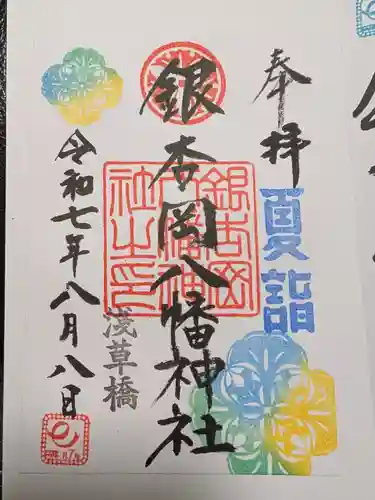 奉拝
夏詣
銀杏岡八幡神社
銀杏岡八幡神社之印
浅草橋
令和七年八月八日